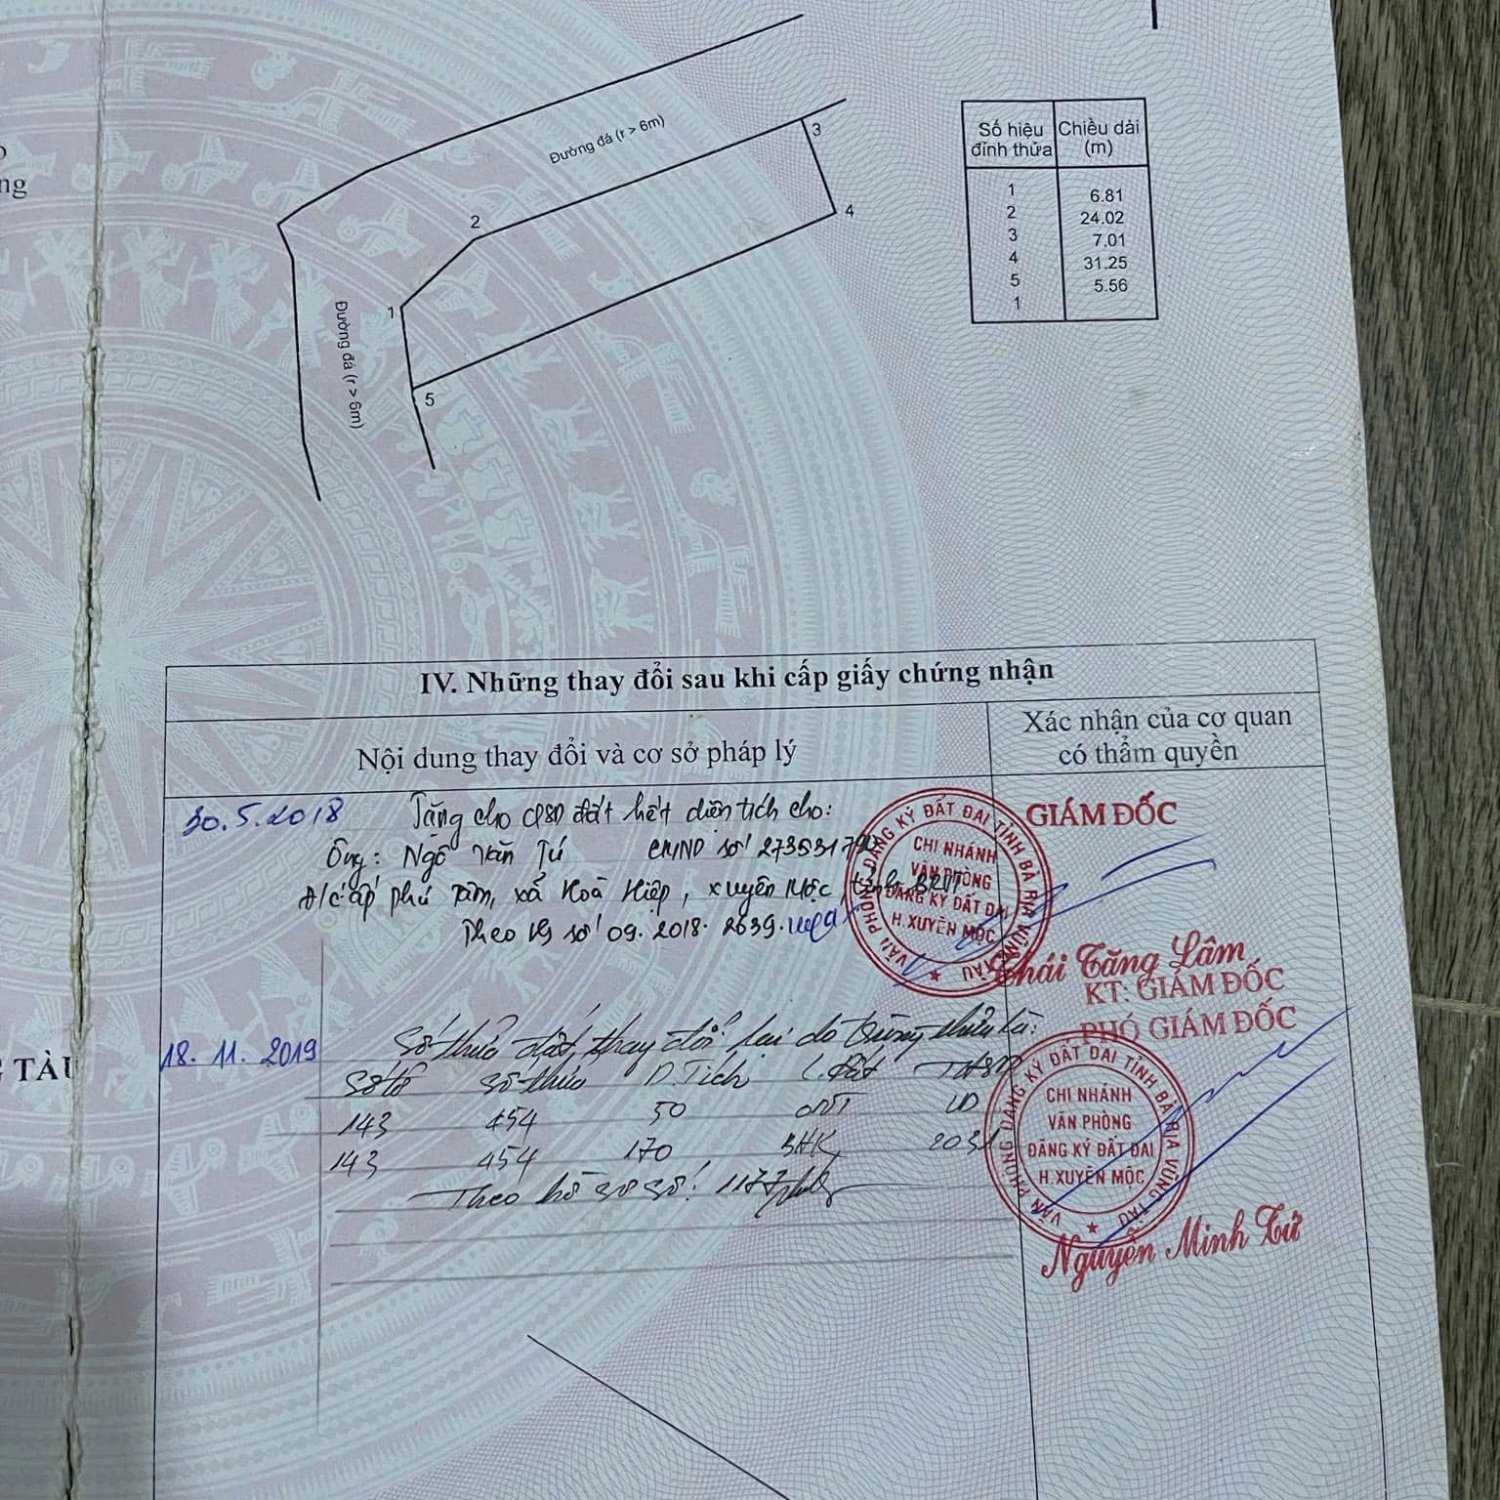 ng
G TÀU
Đường đá (r > 6m)
3
2
4
1
Đường đá (r > 6m)
5
Số hiệu đỉnh thửa
Chiều dài (m)
1 6.81
2 24.02
3 7.01
4 31.25
5 5.56
1
IV. Những thay đổi sau khi cấp giấy chứng nhận
Nội dung thay đổi và cơ sở pháp lý
Xác nhận của cơ quan có thẩm quyền
30.5.2018 Tặng cho QSD đất hết diện tích cho:
Ông: Ngô Văn Tú CMND số
Đ/c: ấp Phú Tâm, xã Hoà Hiệp, Xuyên Mộc, tỉnh BRVT
Theo HS số 09.2018.2639.
GIÁM ĐỐC
VĂN PHÒNG ĐĂNG KÝ ĐẤT ĐAI TỈNH BÀ RỊA VŨNG TÀU
CHI NHÁNH
VĂN PHÒNG
ĐĂNG KÝ ĐẤT ĐAI
H. XUYÊN MỘC
Thái Tăng Lâm
KT: GIÁM ĐỐC
PHÓ GIÁM ĐỐC
18.11.2019 Số thửa đất thay đổi lại do
Số tờ số thửa D.Tích L.Đất THSD
143 454 50 ONT LD
143 454 170 BHK 2031
Theo hồ sơ số: 1177
VĂN PHÒNG ĐĂNG KÝ ĐẤT ĐAI TỈNH BÀ RỊA VŨNG TÀU
CHI NHÁNH
VĂN PHÒNG
ĐĂNG KÝ ĐẤT ĐAI
H. XUYÊN MỘC
Nguyễn Minh Tử